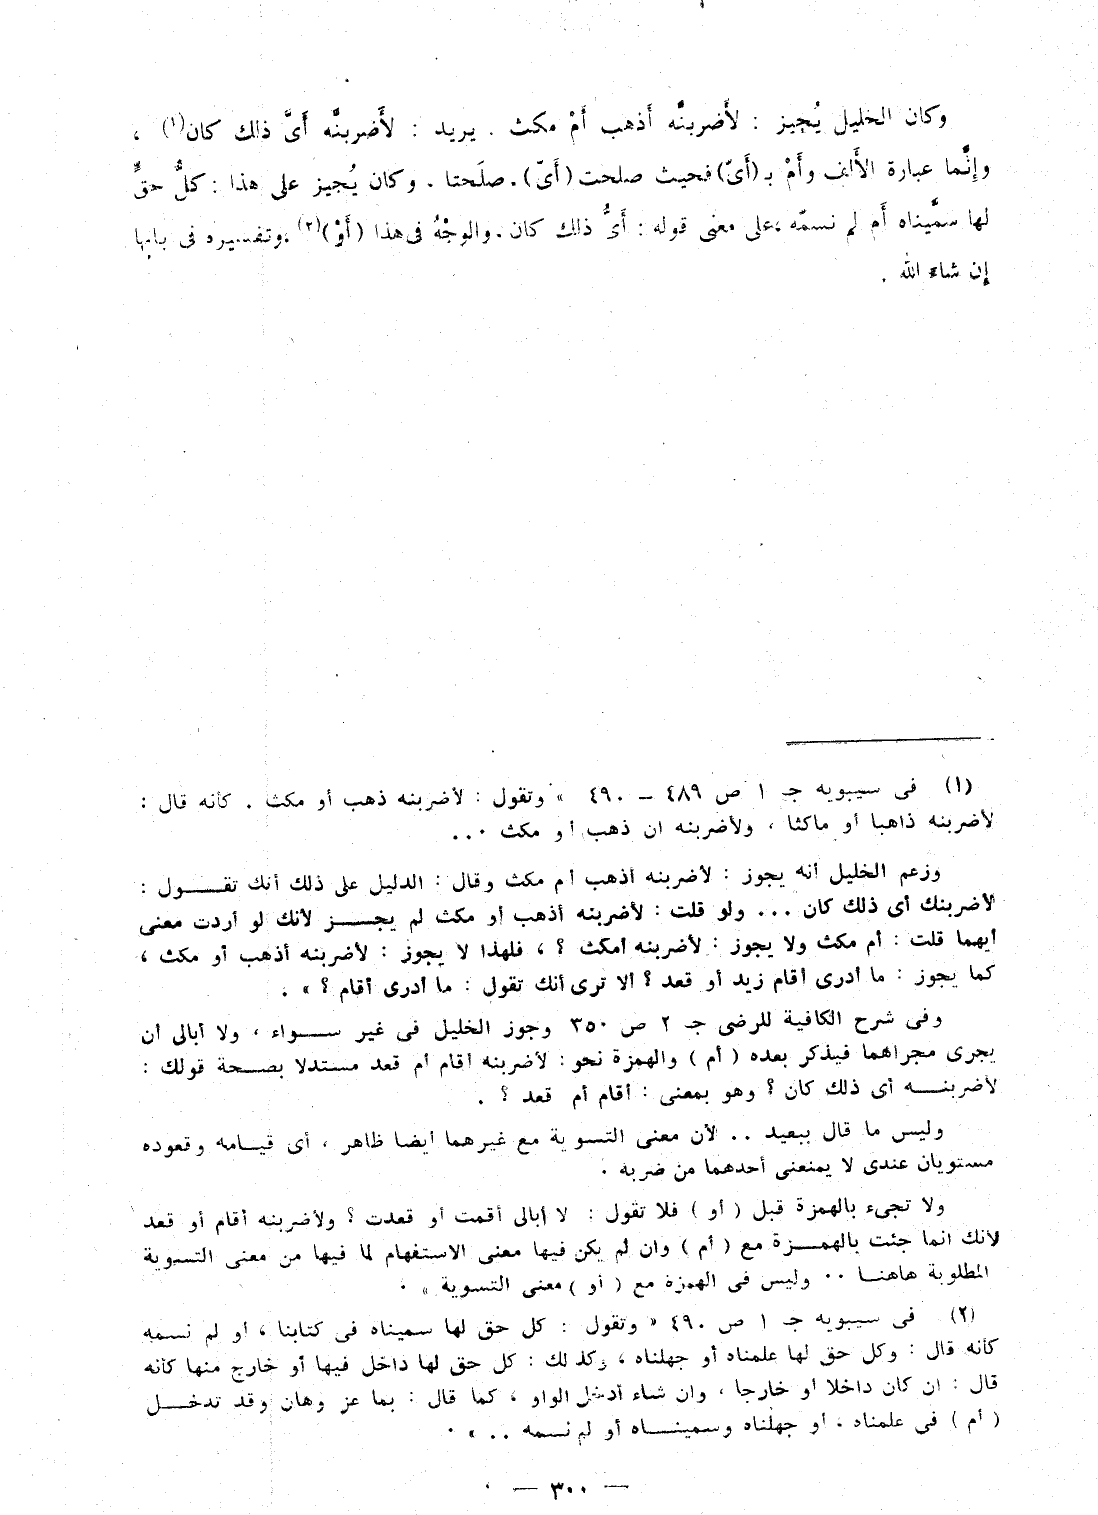 وكان الخليل يُجيز : لأَضربنَّه أَذهب أَمْ مكث . يريد : لأَضربنَّه أَىَّ ذلك كان(١) ،
وإِنَّما عبارة الأَلف وأَمْ بـ (أَىّ) فحيث صلحت (أَىّ) . صلَحتا . وكان يُجيز على هذا : كلُّ حقٍّ
لها سمَّيناه أَم لم نسمّه ،على معنى قوله : أَىُّ ذلك كان . والوجْهُ فى هذا (أَوْ)(٢) ،وتفسيره فى بابها
إن شاء الله .
(١) فى سيبويه جـ ١ ص ٤٨٩ – ٤٩٠ « وتقول : لأضربنه ذهب أو مكث . كأنه قال :
لأضربنه ذاهبا أو ماكثا ، ولأضربنه ان ذهب أو مكث ...
وزعم الخليل أنه يجوز : لأضربنه أذهب أم مكث وقال : الدليل على ذلك أنك تقـــول :
لأضربنك أى ذلك كان ... ولو قلت : لأضربنه أذهب أو مكث لم يجـــز لأنك لو أردت معنى
أيهما قلت : أم مكث ولا يجوز : لأضربنه أمكث ؟ ، فلهذا لا يجوز : لأضربنه أذهب أو مكث ،
كما يجوز : ما أدرى أقام زيد أو قعد ؟ ألا ترى أنك تقول : ما أدرى أقام ؟ » .
وفى شرح الكافية للرضى جـ ٢ ص ٣٥٠ وجوز الخليل فى غير ســـواء ، ولا أبالى أن
يجرى مجراهما فيذكر بعده ( أم ) والهمزة نحو : لأضربنه أقام أم قعد مستدلا بصـحة قولك :
لأضربنـــه أى ذلك كان ؟ وهو بمعنى : أقام أم قعد ؟ .
وليس ما قال ببعيد .. لأن معنى التسوية مع غيرهما أيضا ظاهر ، أى قيــامه وقعوده
مستويان عندى لا يمنعنى أحدهما من ضربه .
ولا تجىء بالهمزة قبل ( أو ) فلا تقول : لا أبالى أقمت أو قعدت ؟ ولأضربنه أقام أو قعد
لأنك انما جئت بالهمـــزة مع ( أم ) وان لم يكن فيها معنى الاستفهام لما فيها من معنى التسوية
المطلوبة هاهنـا .. وليس فى الهمزة مع ( أو ) معنى التسوية » .
(٢) فى سيبويه جـ ١ ص ٤٩٠ « وتقول : كل حق لها سميناه فى كتابنا ، أو لم نسمه
كأنه قال : وكل حق لها علمناه أو جهلناه ، وكذلك : كل حق لها داخل فيها أو خارج منها كأنه
قال : ان كان داخلا أو خارجا ، وان شاء أدخل الواو ، كما قال : بما عز وهان وقد تدخـــل
( أم ) فى علمناه ، أو جهلناه وسمينـــاه أو لم نسمه .. » .
— ٣٠٠ —